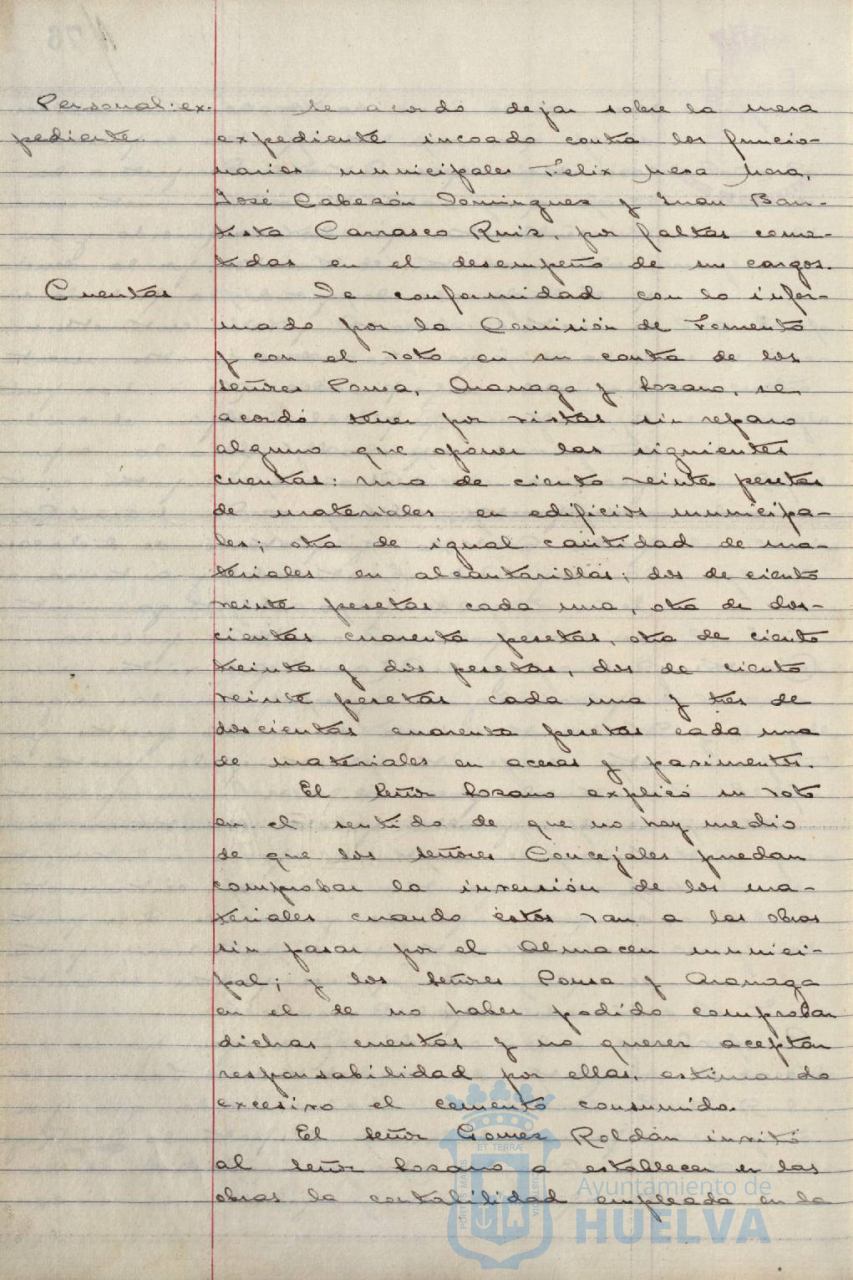 Personal: ex-
pediente.
Se acordó dejar sobre la mesa
expediente incoado contra los funcio-
narios municipales Felix Mesa Mora,
José Cabezón Domínguez y Juan Bau-
tista Carrasco Ruiz, por faltas come-
tidas en el desempeño de su cargos.
Cuentas
De conformidad con lo infor-
mado por la Comisión de Fomento
y con el voto en su contra de los
señores Ponsa, Aramaga y Lozano, se
acordó tener por vistas sin reparo
alguno que oponer las siguientes
cuentas: una de ciento veinte pesetas
de materiales en edificios municipa-
les; otra de igual cantidad de ma-
teriales en alcantarillas; dos de ciento
veinte pesetas cada una, otra de dos-
cientas cuarenta pesetas, otra de ciento
treinta y dos pesetas, dos de ciento
veinte pesetas cada una y tres de
doscientas cuarenta pesetas cada una
de materiales en aceras y pavimentos.
El señor Lozano explicó su voto
en el sentido de que no hay medio
de que los señores Concejales puedan
comprobar la inversión de los ma-
teriales cuando éstos van a las obras
sin pasar por el Almacen munici-
pal; y los señores Ponsa y Aramaga
en el de no haber podido comprobar
dichas cuentas y no querer aceptar
responsabilidad por ellas, estimando
excesivo el cemento consumido.
El señor Gomez Roldán invitó
al señor Lozano a establecer en las
obras la contabilidad empleada en la
Ayuntamiento de
HUELVA